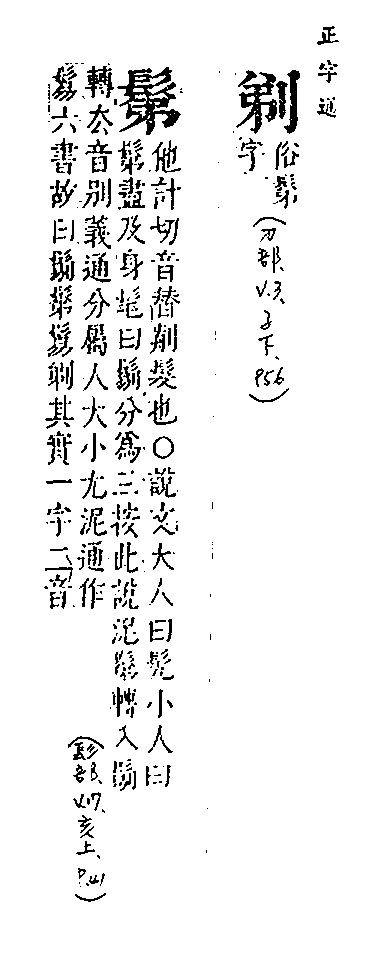 正字通
剃 俗鬀
字
(刀部、V.3、子下、P56)
鬀 他計切音替剃髮也○說文大人曰髡小人曰
鬀盡及身毛曰鬄分為三按此說泥鬀轉入鬄
轉去音別義通分屬人大小尤泥通作
鬄六書故曰鬄鬀髢剔其實一字二音
(髟部、V.17、亥上、P.41)